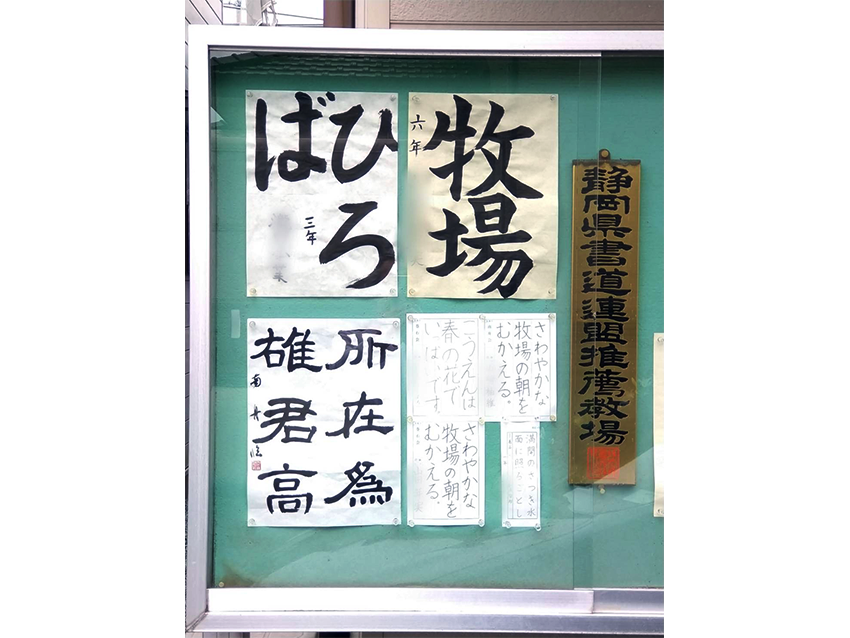 静岡県書道連盟推薦教場
六年
牧場
ひろ
ば
三年
さわやかな
牧場の朝を
むかえる。
こうえんは
春の花で
いっぱいです。
所在為
雄君高
南舟臨
さわやかな
牧場の朝を
むかえる。
満開のさつき水
面に照らっとし